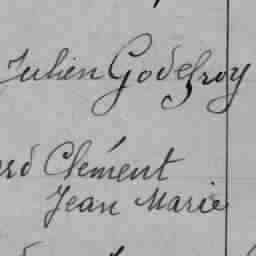 Julien Godefroy
Clément
Jean Marie